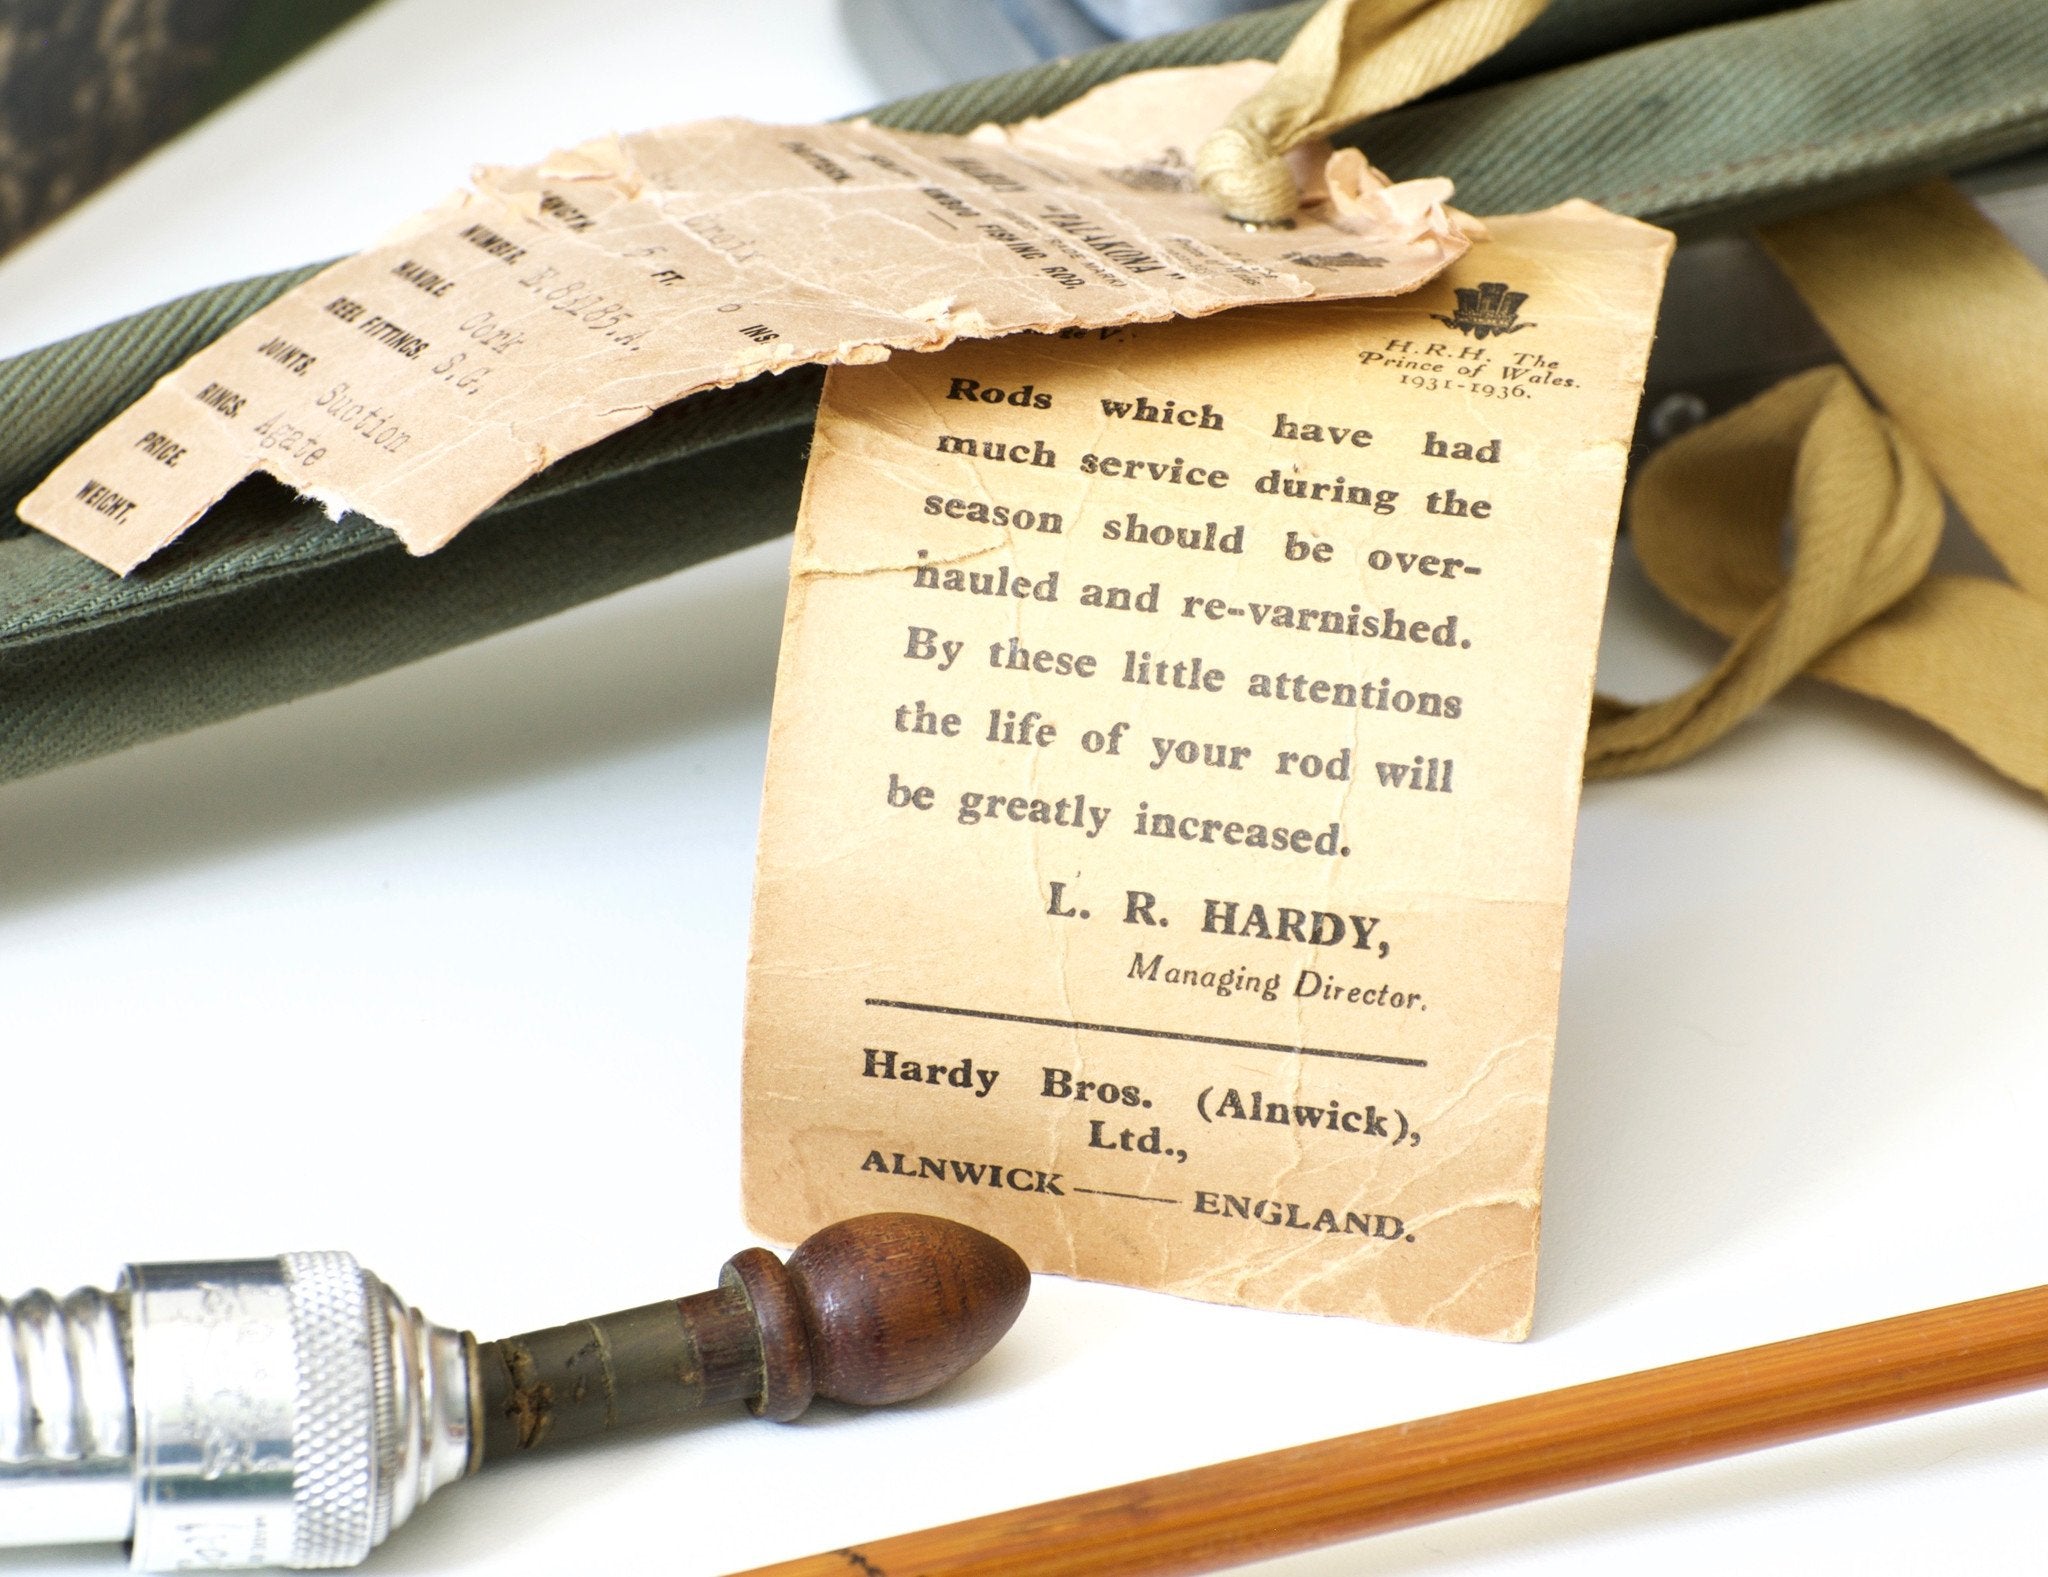 HARDY
"PALAKONA"
BAMBOO FISHING ROD.
PATTERN.
5 FT. 6 INS.
NUMBER. E.83285.A.
HANDLE. Cork
REEL FITTINGS. S.G.
JOINTS. Suction
RINGS. Agate
PRICE.
WEIGHT.
H.R.H. The
Prince of Wales.
1931-1936.
Rods which have had
much service during the
season should be over-
hauled and re-varnished.
By these little attentions
the life of your rod will
be greatly increased.
L. R. HARDY,
Managing Director.
Hardy Bros. (Alnwick),
Ltd.,
ALNWICK —— ENGLAND.